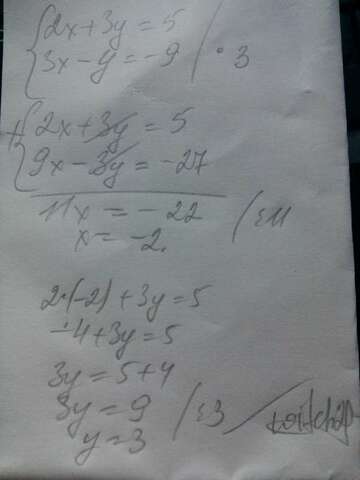 2x+3y=5
3x-y=-9 /·3
+ 2x+3y=5
9x-3y=-27
11x=-22 /:11
x=-2.
2·(-2)+3y=5
-4+3y=5
3y=5+4
3y=9 /:3
y=3